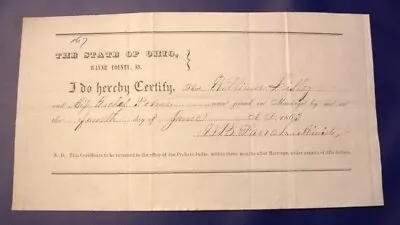 167
THE STATE OF OHIO,
WAYNE COUNTY, SS.
I do hereby Certify, William
and were joined in Marriage by me on
the fourth day of June A. D. 1863
N. B. This Certificate to be returned to the office of the Probate Judge, within three months after Marriage, under penalty of fifty dollars.